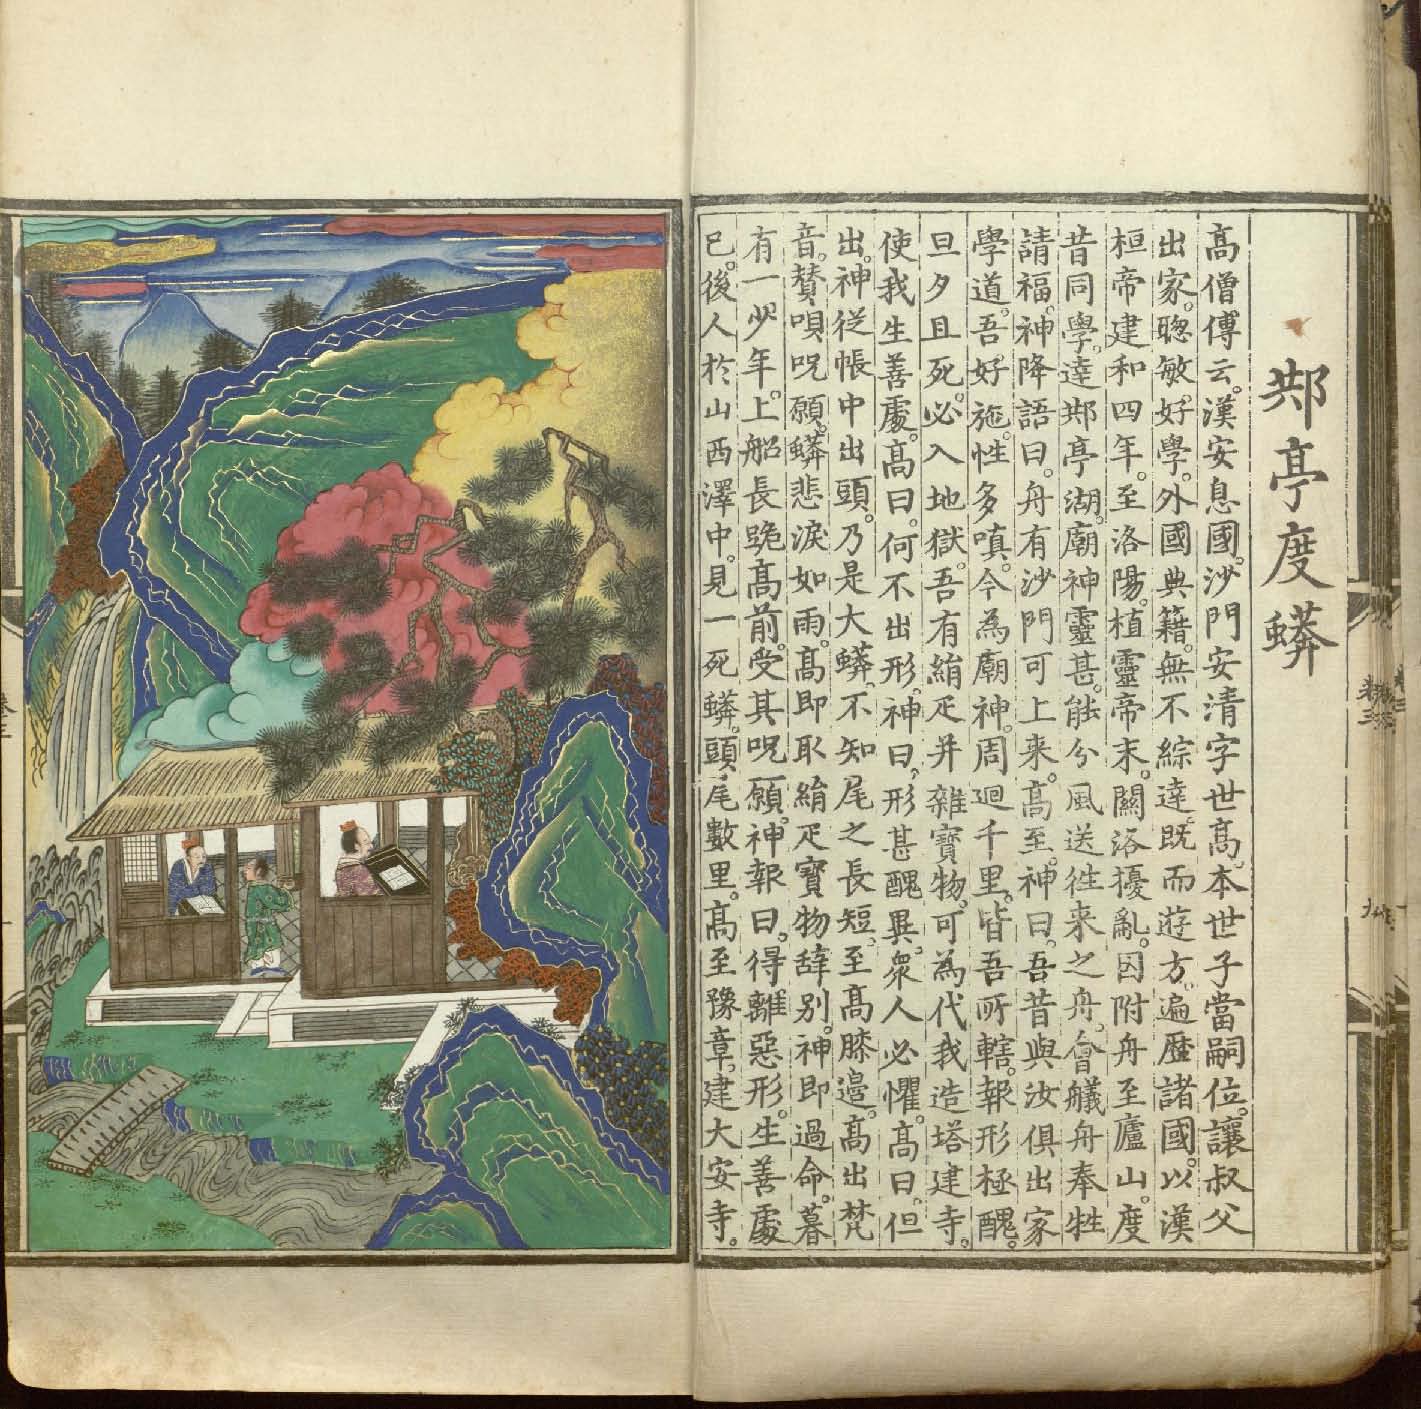 䢼亭度蟒
高僧傳云。漢安息國。沙門安清字世高。本世子當嗣位。讓叔父
出家。聰敏。好學。外國典籍。無不綜達。既而遊方。遍歷諸國。以漢
桓帝建和四年。至洛陽。植靈帝末。關洛擾亂。因附舟至廬山。度
昔同學。達䢼亭湖。廟神靈甚。能分風送徃来之舟。會艤舟奉牲
請福。神降語曰。舟有沙門可上来。高至。神曰。吾昔與汝俱出家
學道。吾好施。性多嗔。今為廟神。周迴千里。皆吾所轄。報形極醜。
旦夕且死。必入地獄。吾有絹疋并雜寶物。可為代我造塔建寺。
使我生善處。高曰。何不出形。神曰。形甚醜異。衆人必懼。高曰。但
出。神從帳中出頭。乃是大蟒。不知尾之長短。至高膝邉。高出梵
音。賛唄呪願。蟒悲淚如雨。高即取絹疋寶物辝别。神即過命。暮
有一少年。上船長跪高前。受其呪願。神報曰。得離惡形。生善處
已。後人於山西澤中。見一死蟒。頭尾數里。高至豫章。建大安寺。